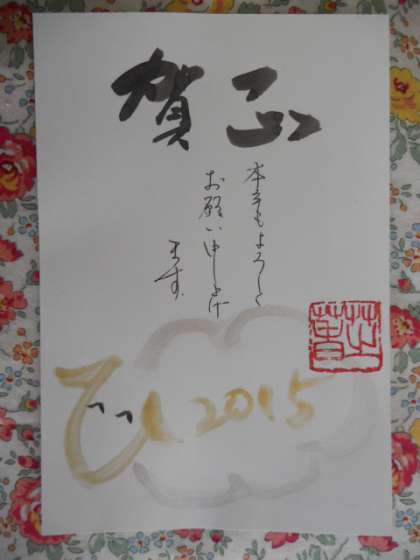 賀正
本年もよろしく
お願い申し上げ
ます
2015